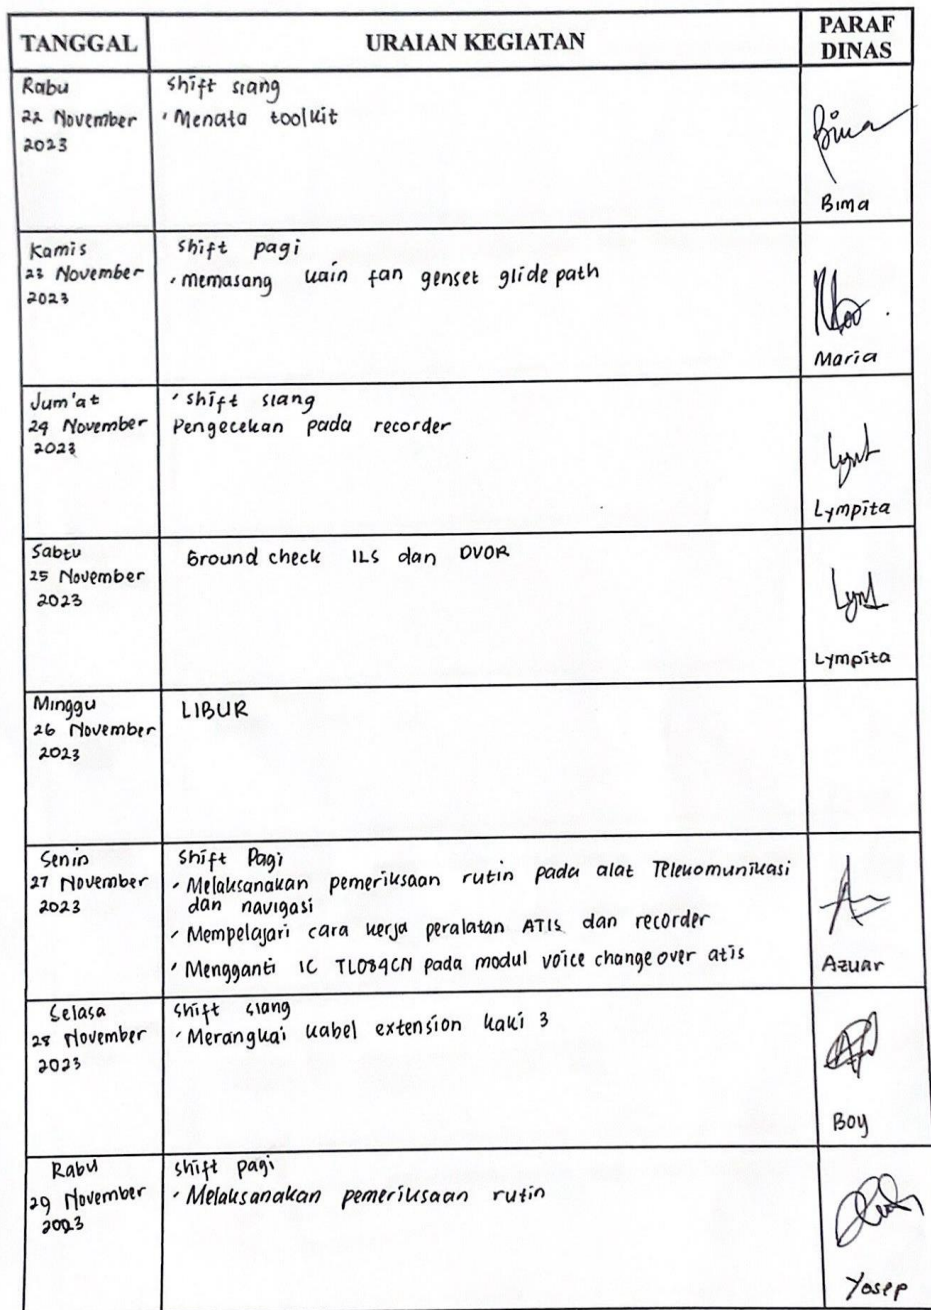 TANGGAL URAIAN KEGIATAN PARAF DINAS
Rabu
22 November
2023
Shift siang
• Menata toolkit
Bima
Kamis
23 November
2023
Shift pagi
• Memasang kain fan genset glide path
Maria
Jum'at
24 November
2023
• Shift siang
Pengecekan pada recorder
Lympita
Sabtu
25 November
2023
Ground check ILS dan DVOR
Lympita
Minggu
26 November
2023
LIBUR
Senin
27 November
2023
Shift Pagi
• Melaksanakan pemeriksaan rutin pada alat Telekomunikasi
dan navigasi
• Mempelajari cara kerja peralatan ATIS dan recorder
• Mengganti IC TL084CN pada modul voice change over atis
Azuar
Selasa
28 November
2023
Shift siang
• Merangkai kabel extension kaki 3
Boy
Rabu
29 November
2023
Shift pagi
• Melaksanakan pemeriksaan rutin
Yosep